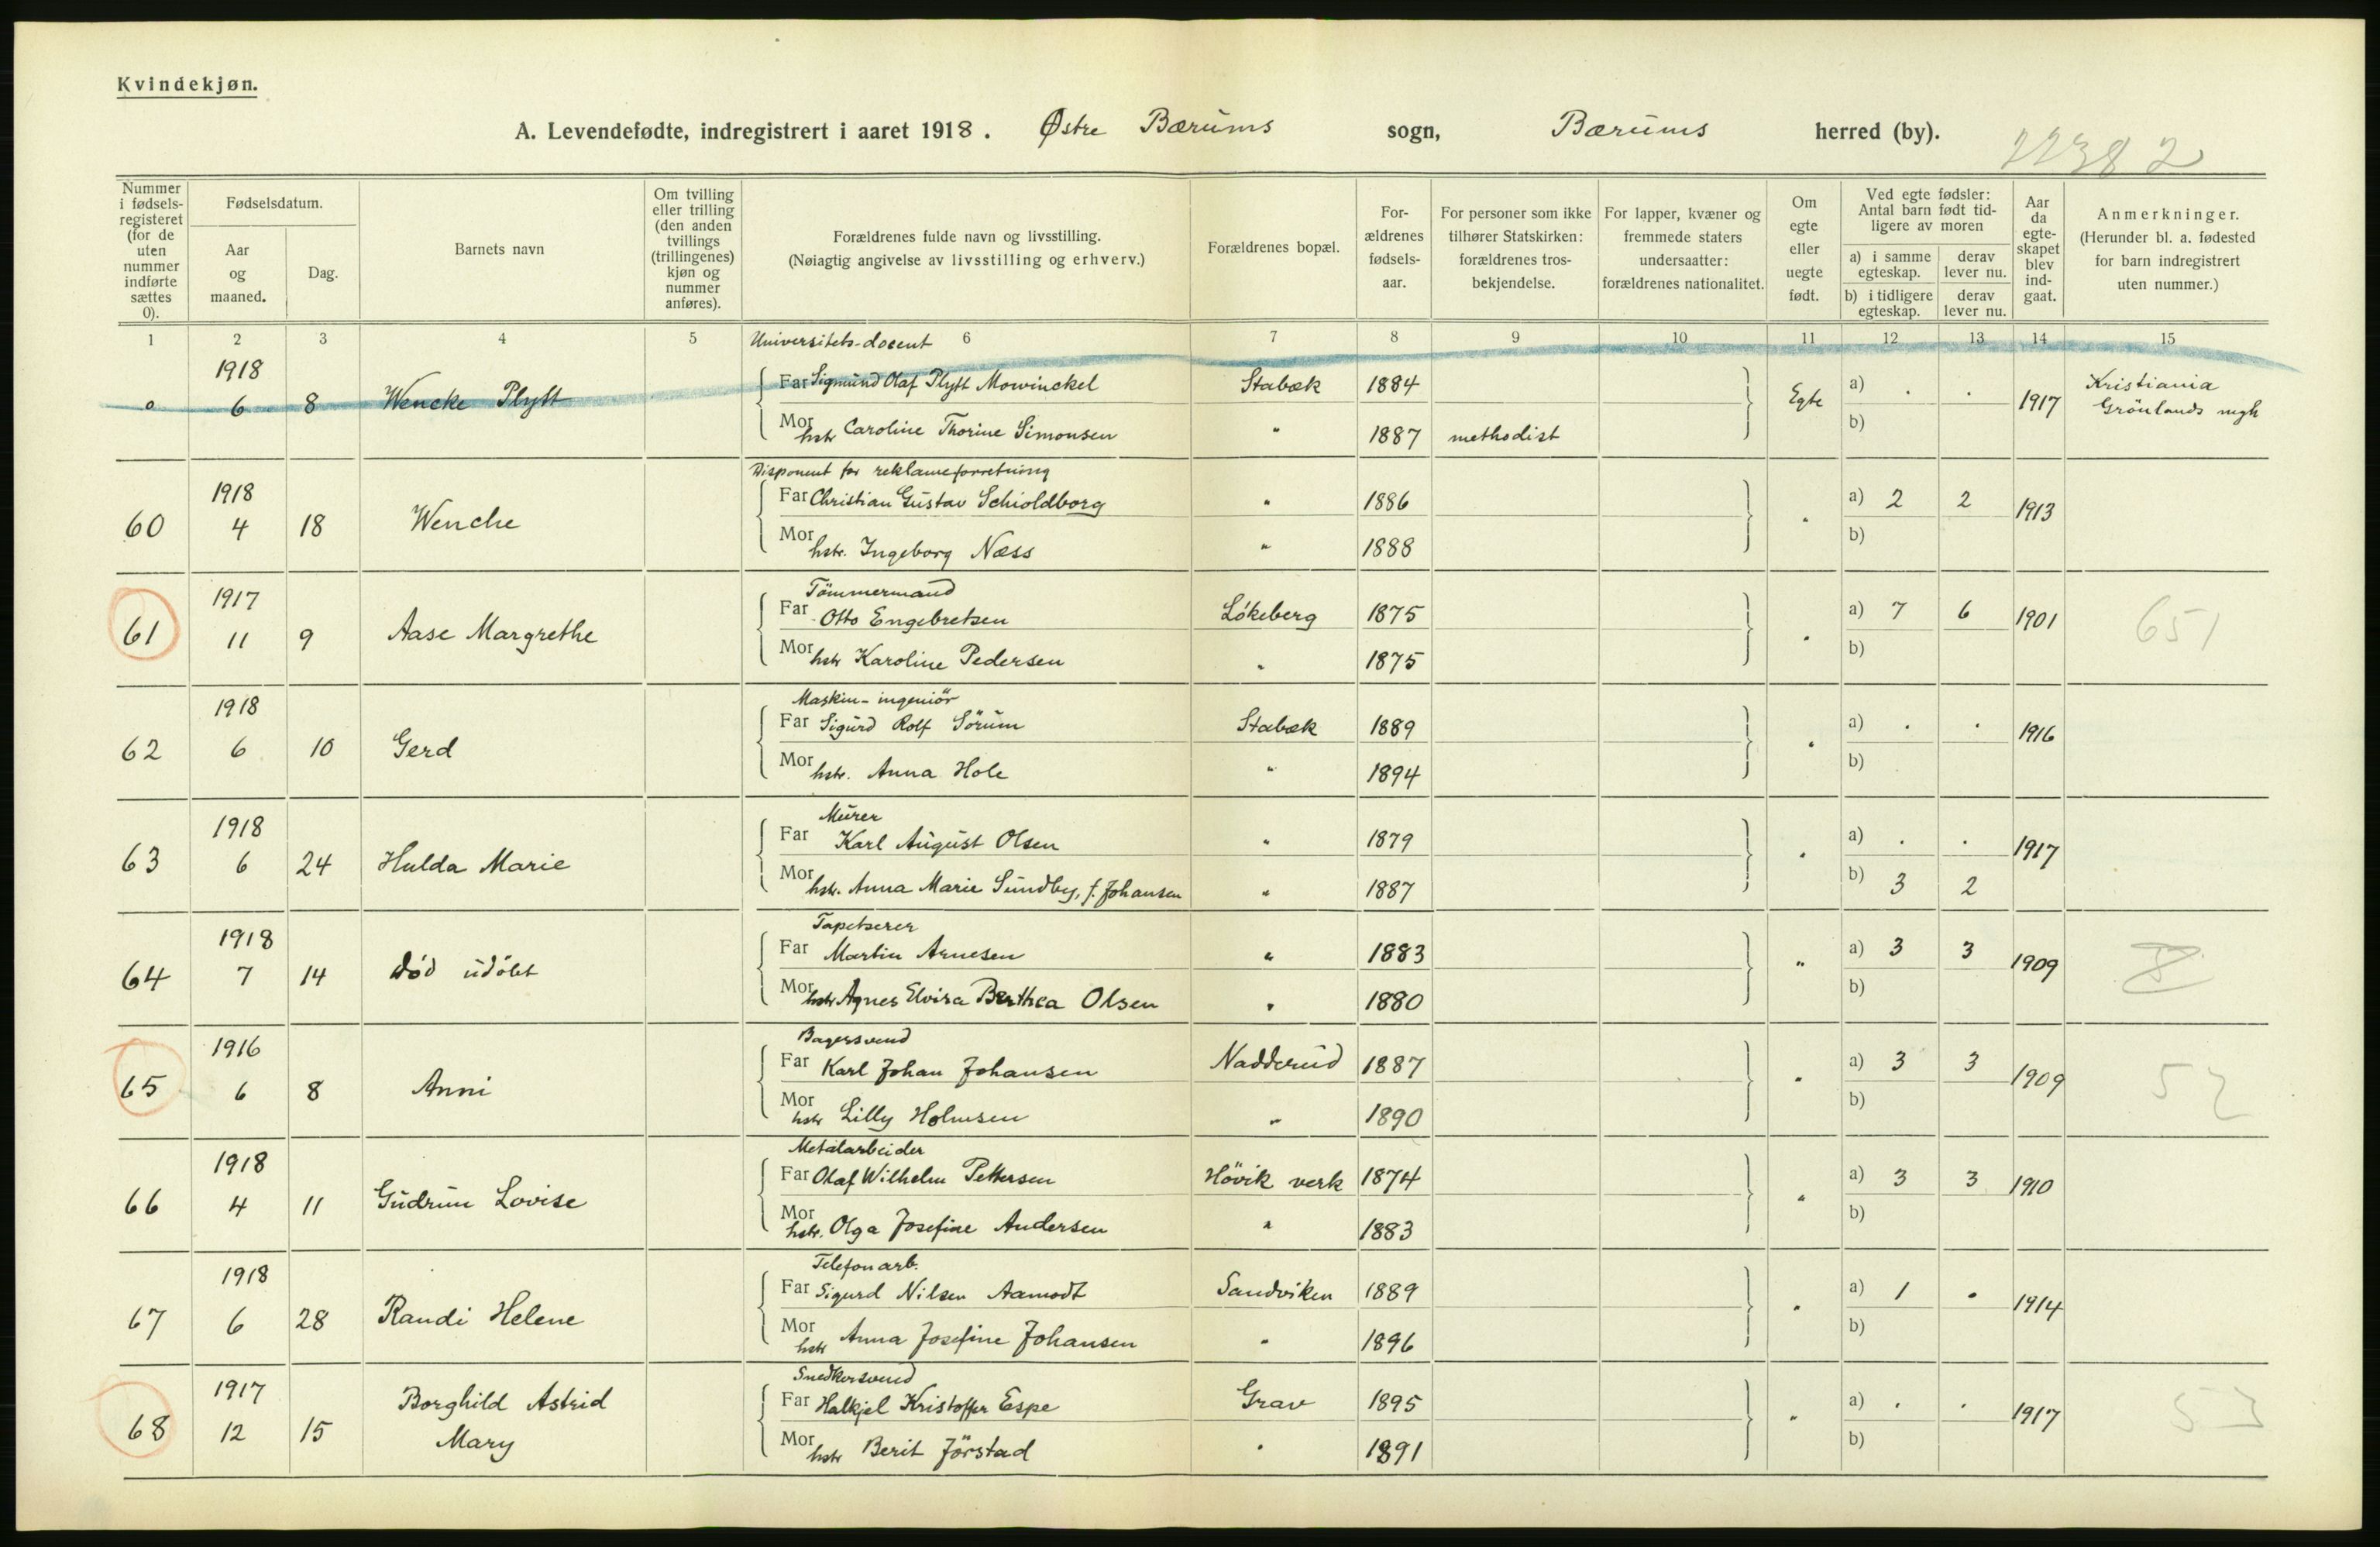 Kvindekjøn.
A. Levendefødte, indregistrert i aaret 1918. Østre Bærums sogn, Bærums herred (by).
22382
Nummer i fødselsregisteret (for de uten nummer indførte sættes 0).
Fødselsdatum.
Aar og maaned.
Dag.
Barnets navn
Om tvilling eller trilling (den anden tvillings (trillingenes) kjøn og nummer anføres).
Forældrenes fulde navn og livsstilling.
(Nøiagtig angivelse av livsstilling og erhverv.)
Forældrenes bopæl.
Forældrenes fødselsaar.
For personer som ikke tilhører Statskirken: forældrenes trosbekjendelse.
For lapper, kvæner og fremmede staters undersaatter: forældrenes nationalitet.
Om egte eller uegte født.
Ved egte fødsler: Antal barn født tidligere av moren
a) i samme egteskap.
derav lever nu.
b) i tidligere egteskap.
derav lever nu.
Aar da egteskapet blev indgaat.
Anmerkninger.
(Herunder bl. a. fødested for barn indregistrert uten nummer.)
1 2 3 4 5 6 7 8 9 10 11 12 13 14 15
Universitets-docent
1918 Far Sigmund Olaf Plytt Mowinckel Stabæk 1884 a) . . Kristiania
0 6 8 Wencke Plytt Egte 1917 Grönlands mgh
Mor hstr Caroline Thorine Simonsen " 1887 methodist b)
Disponent for reklameforretning
1918 Far Christian Gustav Schioldborg " 1886 a) 2 2
60 4 18 Wenche " 1913
Mor hstr. Ingeborg Næss " 1888 b)
Tömmermand
1917 Far Otto Engebretsen Lökeberg 1875 a) 7 6
61 11 9 Aase Margrethe " 1901 651
Mor hstr Karoline Pedersen " 1875 b)
Maskin-ingeniör
1918 Far Sigurd Rolf Sörum Stabæk 1889 a) . .
62 6 10 Gerd " 1916
Mor hstr. Anna Hole " 1894 b)
Murer
1918 Far Karl August Olsen " 1879 a) . .
63 6 24 Hulda Marie " 1917
Mor hstr. Anna Marie Sundby, f. Johansen " 1887 b) 3 2
Tapetserer
1918 Far Martin Arnesen " 1883 a) 3 3
64 7 14 död udöbt " 1909
Mor hstr Agnes Elvira Berthea Olsen " 1880 b)
Bagersvend
1916 Far Karl Johan Johansen Nadderud 1887 a) 3 3
65 6 8 Anni " 1909 52
Mor hstr Lilly Holmsen " 1890 b)
Metalarbeider
1918 Far Olaf Wilhelm Pettersen Hövik verk 1874 a) 3 3
66 4 11 Gudrun Lovise " 1910
Mor hstr. Olga Josefine Andersen " 1883 b)
Telefonarb.
1918 Far Sigurd Nilsen Aamodt Sandviken 1889 a) 1 .
67 6 28 Randi Helene " 1914
Mor hstr Anna Josefine Johansen " 1896 b)
Snedkersvend
1917 Borghild Astrid Far Halkjel Kristoffer Espe Grav 1895 a) . .
68 12 15 Mary " 1917 53
Mor hstr Berit Jörstad " 1891 b)